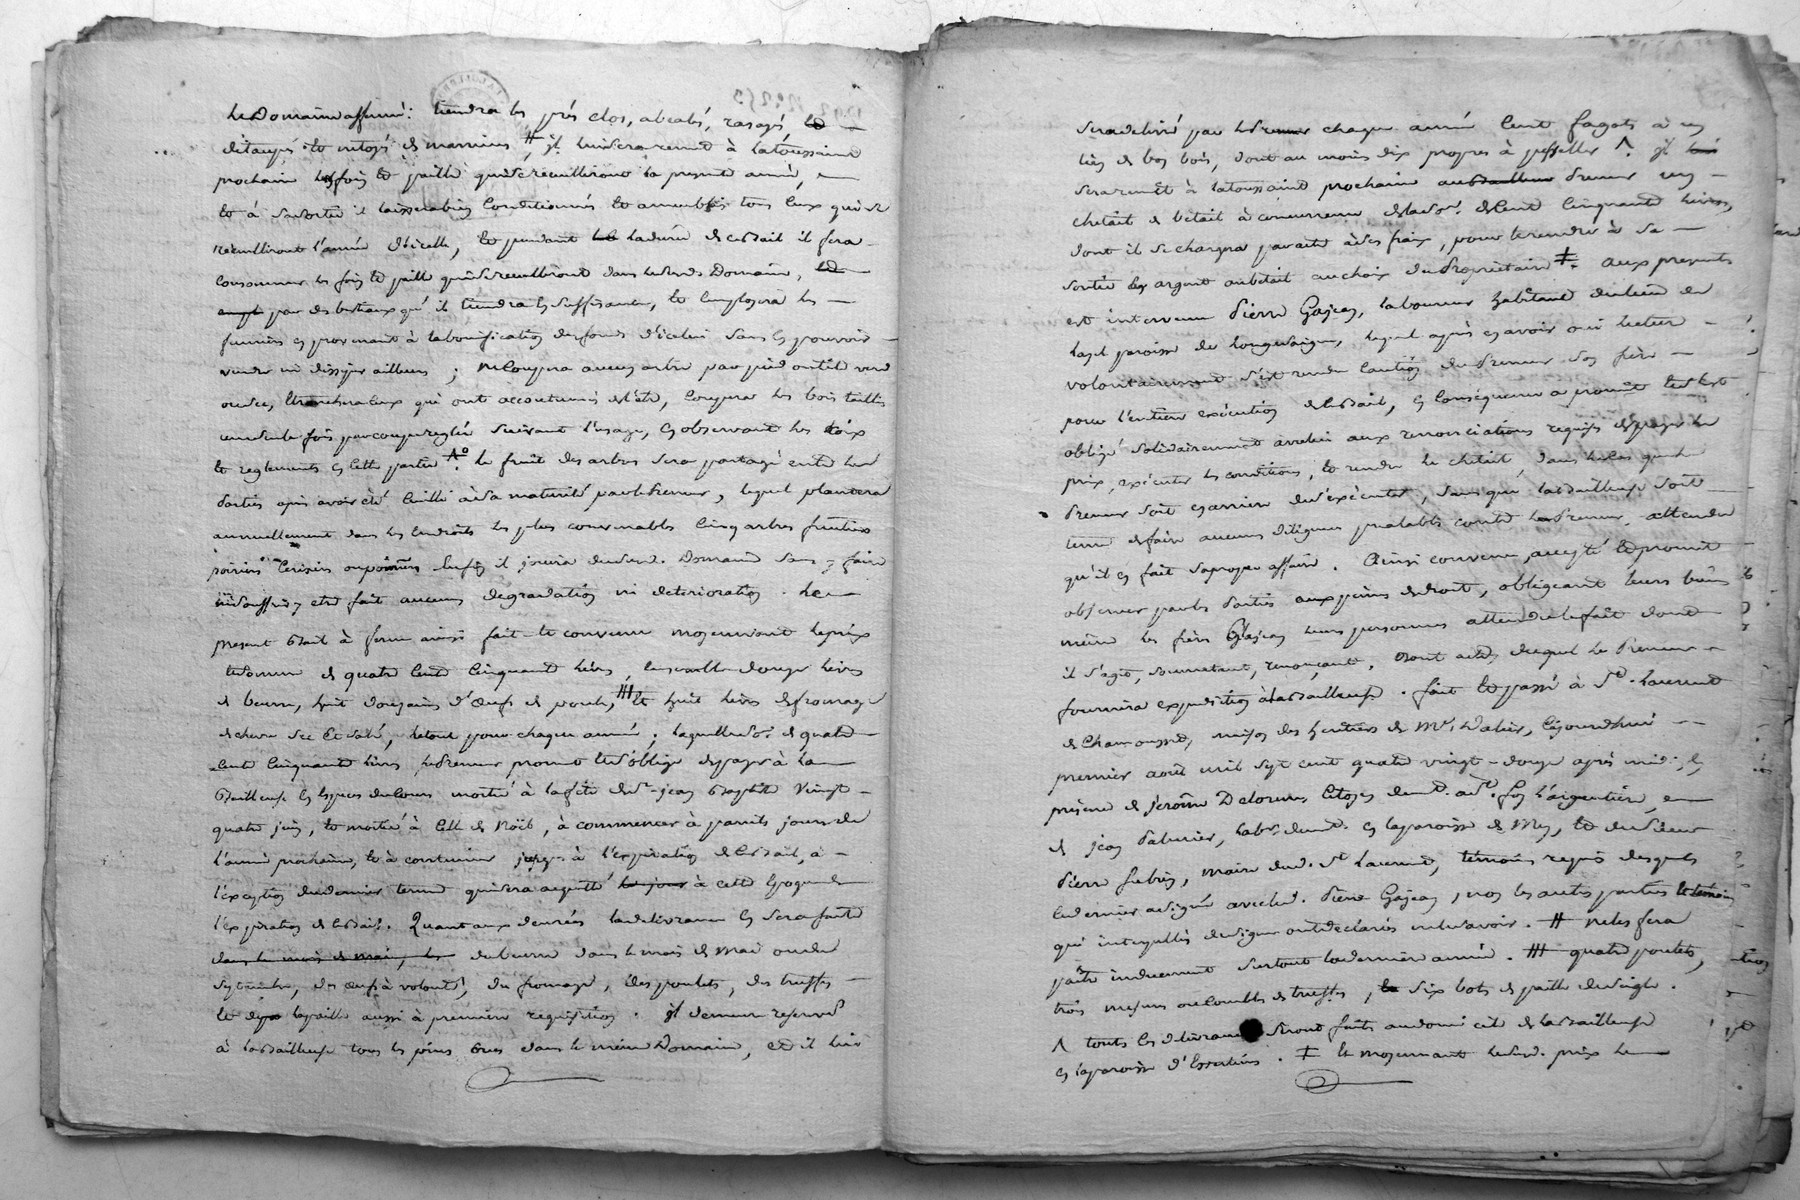 le Domaine affermé: tiendra les prés clos, abealés, rasagés, et
detaupés et netoyés de maniere # il lui sera remit à la toussaint
prochain les foin et paille qui se recueilliront la presente année,
et à sa sortie il laissera bien conditionnés et tous ceux qui se
recueilliront l'année d'icelle, et pendant la durée de ce Bail il fera
consommer les foin et paille qui se recueilliront dans led. Domaine,
par des bestiaux qu'il tiendra en suffisance, et employera les
fumiers en provenant à la bonification des fonds d'icelui sans en pouvoir
vendre ni ailleurs; ne coupera aucun arbre par pied soit il verd
ou sec, ébranchera ceux qui ont accoutumés de l'être, coupera les bois taillis
une seule fois par coupe reglée suivant l'usage, en observant les loix
et reglements en cette partie. le fruit des arbres sera partagé entre les
Parties après avoir été cuilli à sa maturité par le Preneur, lequel plantera
annuellement dans les endroits les plus convenables cinq arbres fruitiers
poiriers cerisiers ou pomiers enfin il jouira dud. Domaine sans y faire
ni souffrir y etre fait aucune degradation ni deterioration. Le
present Bail à ferme ainsi fait et convenu moyennant le prix
et somme de quatre cent cinquante livres, ensemble douze livres
de beurre, huit douzaines d'œufs de poule, ### et huit livres de fromage
de chevre sec et salé, le tout pour chaque année; laquelle so.e de quatre
cent cinquante livres le Preneur promet et s'oblige de payer à la
Bailleuse en especes de cours moitié à la fête de St jean Baptiste vingt
quatre juin, et moitié à celle de Noël, à commencer à pareils jours de
l'année prochaine, et à continuer jusques à l'expiration de ce Bail, à
l'exception du dernier terme qui sera acquitté le jour à cette Epoque de
l'expiration de ce Bail. Quant aux denrées la delivrance en sera faite
dans le mois de mai, les du beurre dans le mois de mai ou de
septembre, des œufs à volonté, du fromage, des poulets, des truffes
et la paille aussi à premiere requisition. il demeure reservé
à la Bailleuse tous les dans le même Domaine, et il lui
sera delivré par le Preneur chaque année cent fagots à un
lien de bon bois, dont au moins dix propres à pesseller Λ. il lui
sera remit à la toussaint prochaine au Bailleur Preneur un
cheteil de betail à concurrence de la so.e de cent cinquante livres,
dont il se chargera par acte à ses frais, pour le rendre à sa
sortie en argent ou betail au choix du Proprietaire ‡. aux presentes
est intervenu Pierre Gajean, laboureur habitant du lieu de
paroisse de Longessaigne, lequel après en avoir oui lecture
volontairement s'est rendu caution du Preneur son frère
pour l'entiere exécution de ce Bail, en conséquence a promit et s'est
obligé solidairement avec lui aux renonciations requises de payer le
prix, exécuter les conditions, et rendre le cheteil, dans le cas que le
Preneur soit en arriere de s'exécuter, sans que la Bailleuse soit
tenue de faire aucunes diligences prealables contre le Preneur attendu
qu'il en fait sa propre affaire. Ainsi convenu, accepté et promit
observer par les Parties aux peines de droit, obligeant leurs biens
même les frères Gajean leurs personnes attendu le fait dont
il s'agit, soumettant, renonçant, dont acte, duquel le Preneur
fournira expedition à la Bailleuse. fait et passé à St. Laurent
de Chamousset, maison des heritiers de Mr. Dalier, cejourdhui
premier août mil sept cent quatre vingt-douze après midi; en
presence de jerôme Delormes Citoyen demt. aud. l'argentière,
et jean Palmier, labr. demt. en la paroisse de Mey, et du sieur
Pierre frebry, maire dud. St Laurent, témoins requis desquels
ce dernier a signé avec led. Pierre Gajean, non les autres parties et temoin
qui interpellés de signer ont déclarés ne le savoir. # ne les fera
paître induement surtout la derniere année. ### quatre poulets,
trois mesures ou combles de truffes, et six bots de paille de seigle.
Λ toutes les delivrances seront faites au domicile de la Bailleuse
en la paroisse d'Essertines. ‡ et moyennant led. prix le